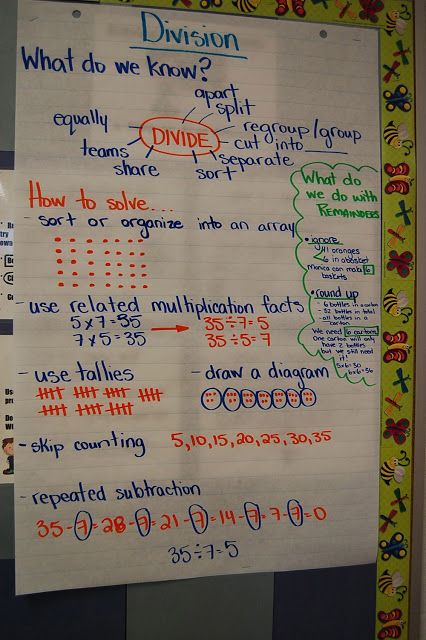 Division
What do we know?
apart
split
equally
regroup/group
DIVIDE
cut into
teams
separate
share
sort
How to solve....
- sort or organize into an array
- use related multiplication facts
5 x 7 = 35
35 ÷ 7 = 5
7 x 5 = 35
35 ÷ 5 = 7
- use tallies
- draw a diagram
- skip counting 5, 10, 15, 20, 25, 30, 35
- repeated subtraction
35 - 7 = 28 - 7 = 21 - 7 = 14 - 7 = 7 - 7 = 0
35 ÷ 7 = 5
What do
we do with
REMAINDERS
• ignore
41 oranges
6 in a basket
Monica can make 6
baskets
• round up
- 6 bottles in a carton
- 32 bottles in total
- all bottles in a
carton
We need 6 cartons
One carton will only
have 2 bottles
but we still need
it!
5x6=30
6x6=36